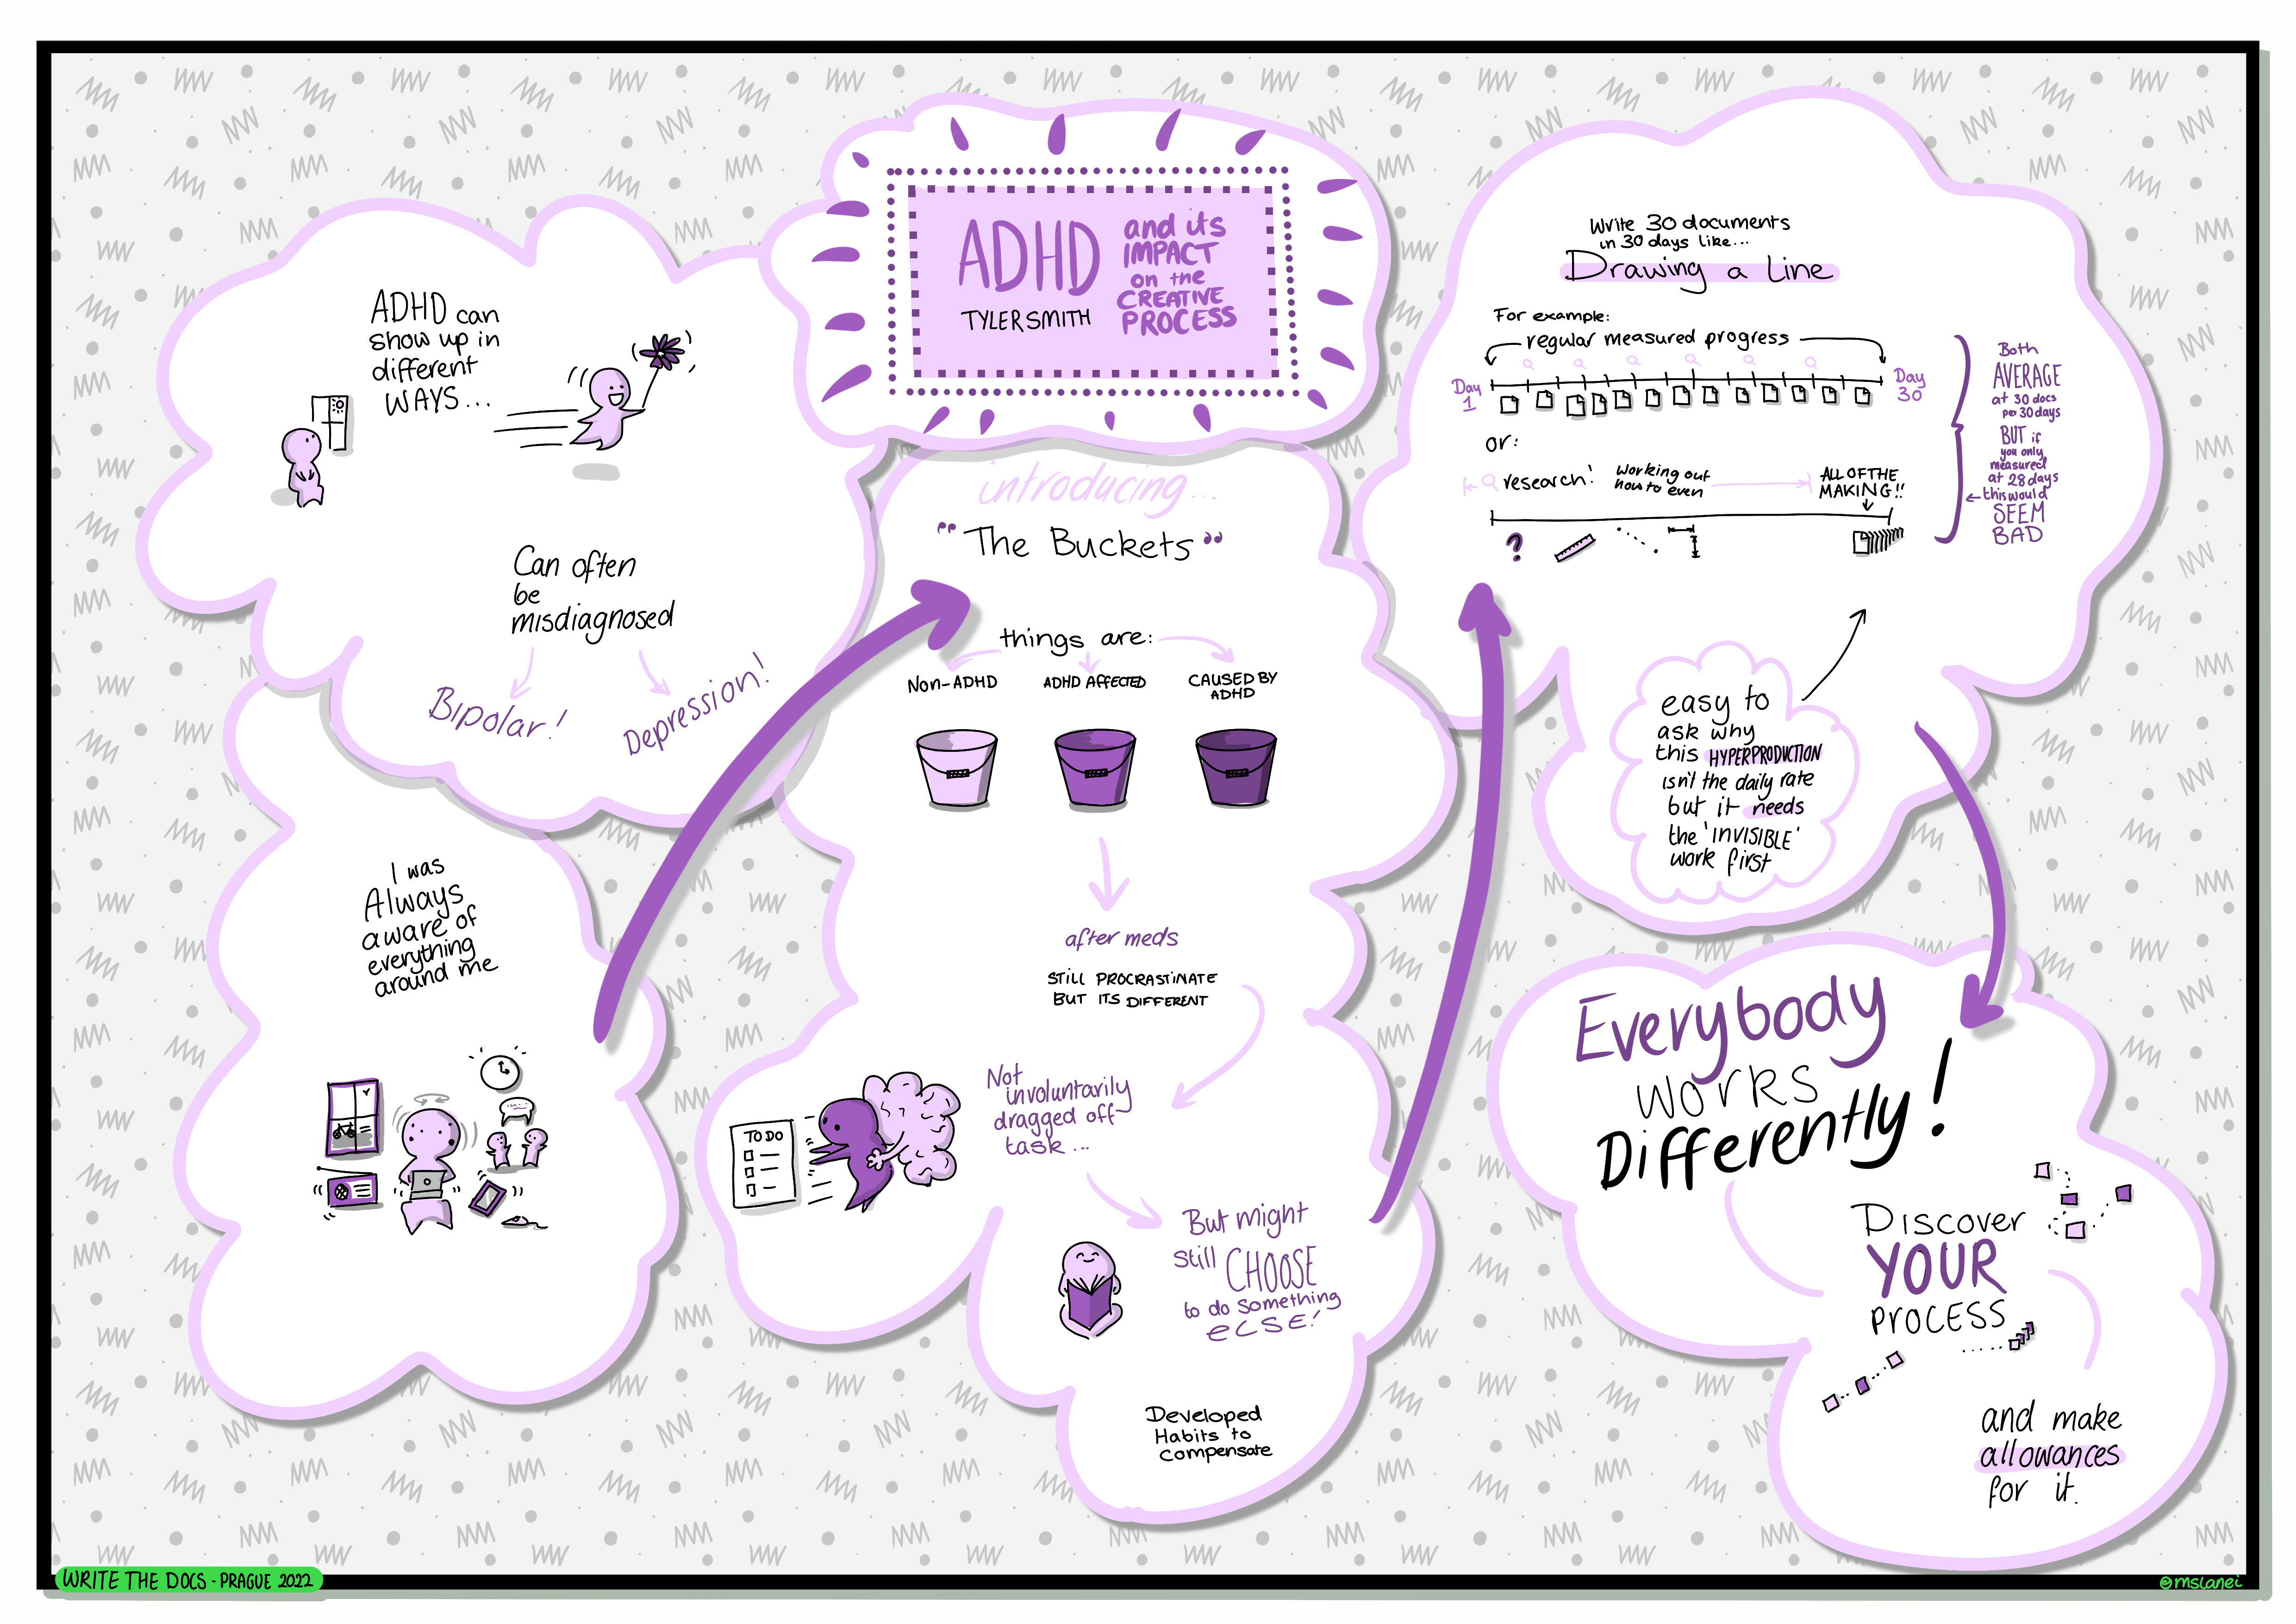 ADHD
TYLER SMITH
and its
IMPACT
on the
CREATIVE
PROCESS
ADHD can
show up in
different
WAYS...
Can often
be
misdiagnosed
Bipolar!
Depression!
I was
Always
aware of
everything
around me
introducing...
"The Buckets"
things are:
Non-ADHD
ADHD AFFECTED
CAUSED BY
ADHD
after meds
STILL PROCRASTINATE
BUT ITS DIFFERENT
Not
involuntarily
dragged off-
task...
TO DO
But might
still CHOOSE
to do something
ELSE!
Developed
Habits to
compensate
Write 30 documents
in 30 days like...
Drawing a line
For example:
regular measured progress
Day
1
Day
30
or:
research!
working out
how to even
ALL OF THE
MAKING!!
?
Both
AVERAGE
at 30 docs
per 30 days
BUT if
you only
measured
at 28 days
this would
SEEM
BAD
easy to
ask why
this HYPERPRODUCTION
isn't the daily rate
but it needs
the 'INVISIBLE'
work first
Everybody
works
Differently!
Discover
YOUR
process
and make
allowances
for it.
WRITE THE DOCS - PRAGUE 2022
@mslanei